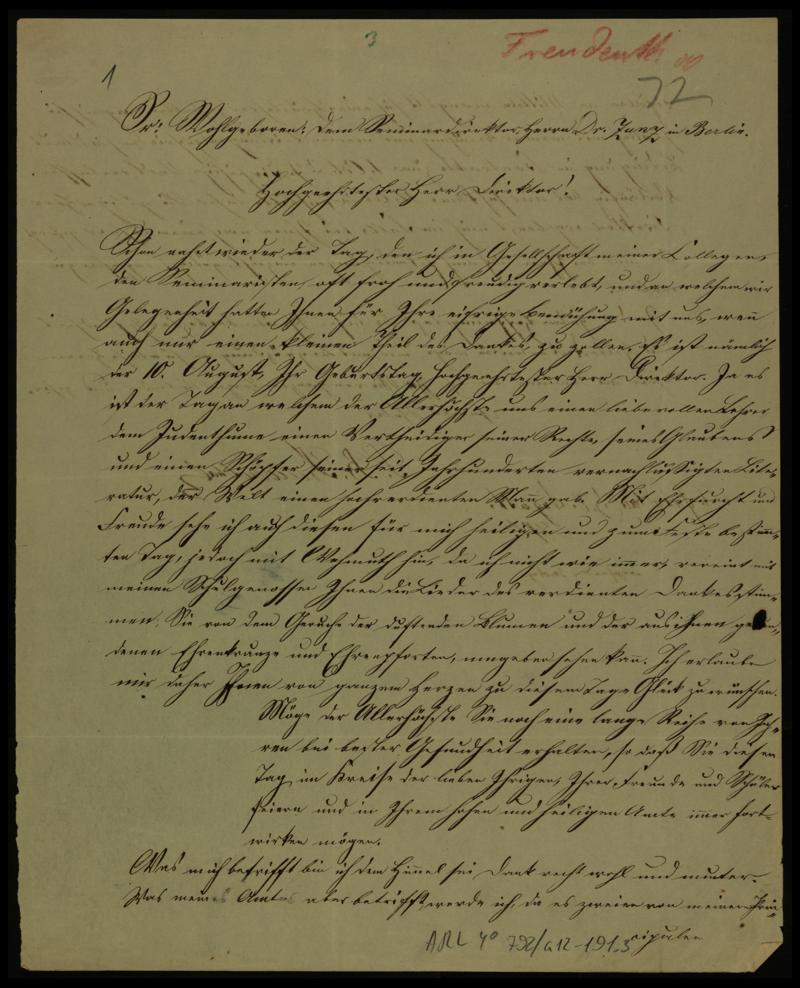 3
Freudenth
1
72
Sr: Wohlgeboren: dem Seminardirektor Herrn Dr. Zunz in Berlin.
Hochgeehrtester Herr Direktor!
Schon naht wieder der Tag, den ich in Gesellschaft meiner Collegen,
den Seminaristen, oft froh und freudig verlebt, und an welchem wir
Gelegenheit hatten Ihnen für Ihre eifrige Bemühung mit uns, wenn
auch nur einen kleinen Theil des Dankes, zu zollen. Es ist nämlich
der 10. August, Ihr Geburtstag, hochgeehrtester Herr Direktor. Ja es
ist der Tag an welchem der Allerhöchste uns einen liebevollen Lehrer
dem Judenthume einen Vertheidiger seiner Rechte, seines Glaubens
und einen Schöpfer seiner seit Jahrhunderten vernachlässigten Lite-
ratur, der Welt einen hochverdienten Mann gab. Mit Ehrfurcht und
Freude sehe ich auf diesen für mich heiligen und zum Feste bestimm-
ten Tag, jedoch mit Wehmuth hin, da ich nicht wie immer, vereint mit
meinen Schulgenossen Ihnen die Lieder des verdienten Dankes stim-
men, Sie von dem Geruche der duftenden Blumen und der aus ihnen gewun-
denen Ehrenkränze und Ehrenpforten, umgeben sehen kann. Ich erlaube
mir daher Ihnen von ganzem Herzen zu diesem Tage Glück zu wünschen.
Möge der Allerhöchste Sie noch eine lange Reihe von Jah-
ren bei bester Gesundheit erhalten, so daß Sie diesen
Tag im Kreise der lieben Ihrigen, Ihrer Freunde und Schüler
feiern und in Ihrem hohen und heiligen Amte immer fort-
wirken mögen.
Was mich betrifft bin ich dem Himmel sei Dank recht wohl und munter.
Was meines Amtes aber betrifft werde ich, da es zweien von meinen Prin-
cipalen
ARC 4° 792/G12-191.3